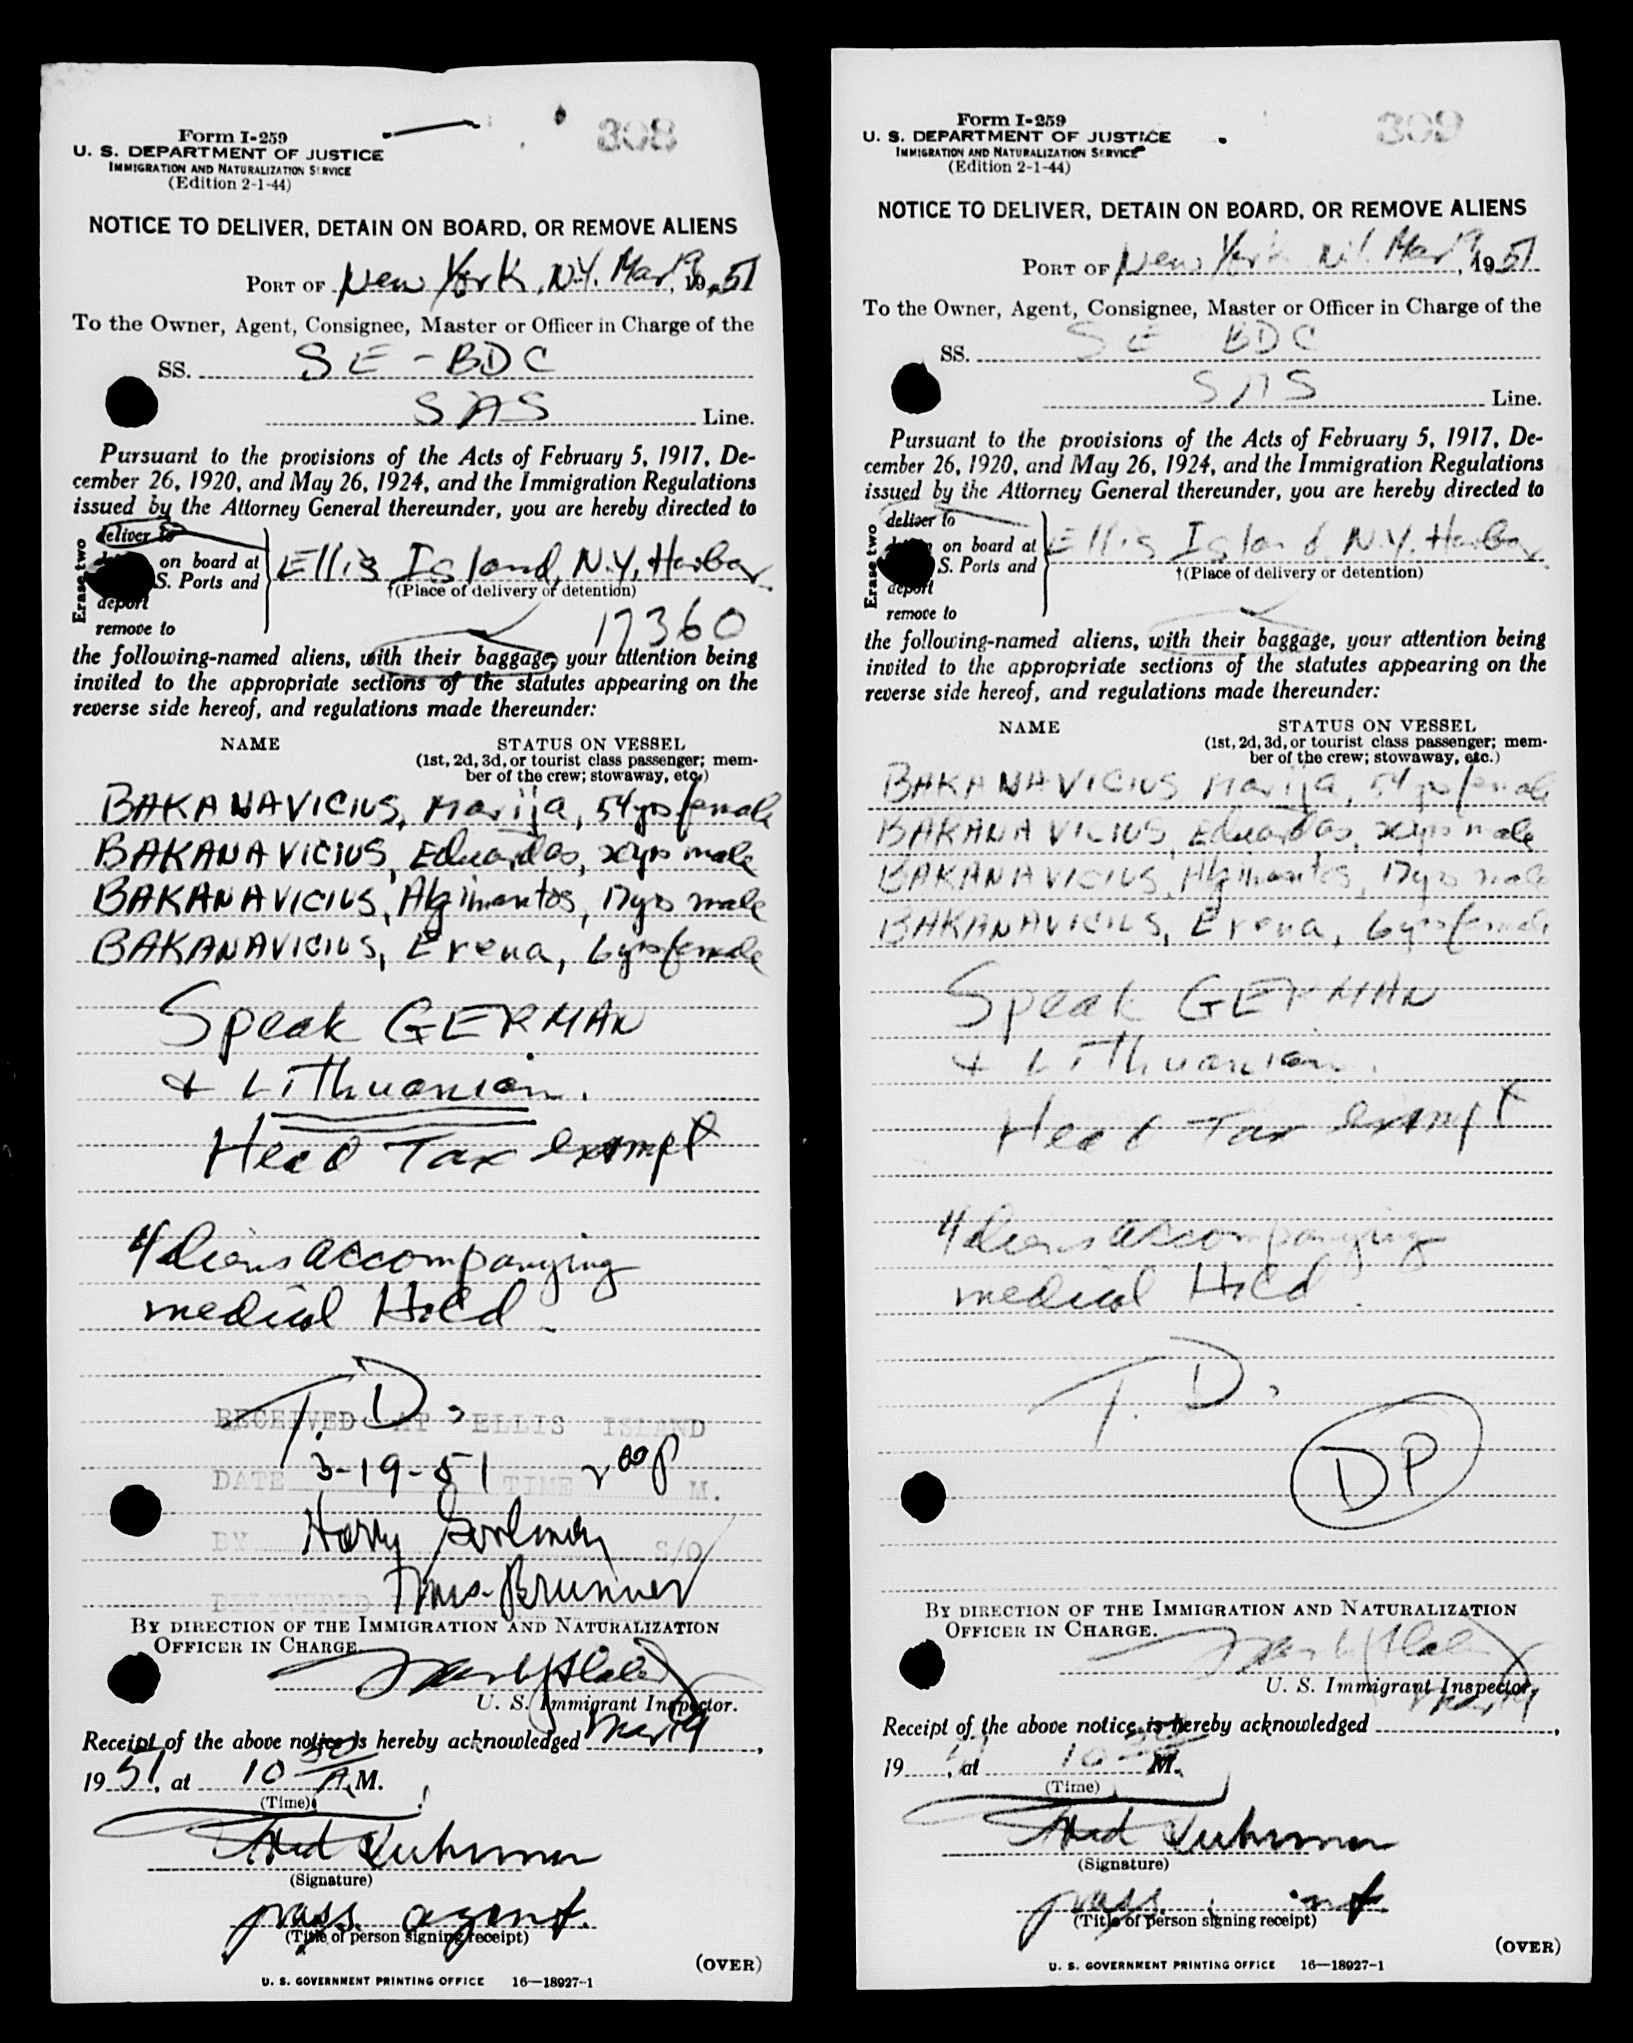 308
Form I-259
U. S. DEPARTMENT OF JUSTICE
IMMIGRATION AND NATURALIZATION SERVICE
(Edition 2-1-44)
NOTICE TO DELIVER, DETAIN ON BOARD, OR REMOVE ALIENS
PORT OF New York, N.Y. Mar 19, 1951
To the Owner, Agent, Consignee, Master or Officer in Charge of the
SS. SE-BDC
SAS Line.
Pursuant to the provisions of the Acts of February 5, 1917, De-
cember 26, 1920, and May 26, 1924, and the Immigration Regulations
issued by the Attorney General thereunder, you are hereby directed to
Erase two
deliver to
on board at
S. Ports and
deport
remove to
Ellis Island, N.Y. Harbor
†(Place of delivery or detention)
17360
the following-named aliens, with their baggage, your attention being
invited to the appropriate sections of the statutes appearing on the
reverse side hereof, and regulations made thereunder:
NAME STATUS ON VESSEL
(1st, 2d, 3d, or tourist class passenger; mem-
ber of the crew; stowaway, etc.)
BAKANAVICIUS, Marija, 54 yrs female
BAKANAVICIUS, Eduardas, yrs male
BAKANAVICIUS, Algimantos, 17 yrs male
BAKANAVICIUS, Erena, 6 yrs female
Speak GERMAN
+ Lithuanian.
Head Tax exempt
4 aliens accompanying
medical Hold.
T. D.
RECEIVED AT ELLIS ISLAND
DATE 3-19-51 TIME 2 00 P M.
BY Harry S/O
DELIVERED Brunner
BY DIRECTION OF THE IMMIGRATION AND NATURALIZATION
OFFICER IN CHARGE.
U. S. Immigrant Inspector.
Receipt of the above notice is hereby acknowledged Mar 19,
1951, at 10 30 A.M.
(Time)
(Signature)
pass. agent.
(Title of person signing receipt)
(OVER)
U. S. GOVERNMENT PRINTING OFFICE 16—18927-1
309
Form I-259
U. S. DEPARTMENT OF JUSTICE
IMMIGRATION AND NATURALIZATION SERVICE
(Edition 2-1-44)
NOTICE TO DELIVER, DETAIN ON BOARD, OR REMOVE ALIENS
PORT OF New York N.Y. Mar 19, 1951
To the Owner, Agent, Consignee, Master or Officer in Charge of the
SS. SE BDC
SAS Line.
Pursuant to the provisions of the Acts of February 5, 1917, De-
cember 26, 1920, and May 26, 1924, and the Immigration Regulations
issued by the Attorney General thereunder, you are hereby directed to
Erase two
deliver to
on board at
S. Ports and
deport
remove to
Ellis Island, N.Y. Harbor
†(Place of delivery or detention)
the following-named aliens, with their baggage, your attention being
invited to the appropriate sections of the statutes appearing on the
reverse side hereof, and regulations made thereunder:
NAME STATUS ON VESSEL
(1st, 2d, 3d, or tourist class passenger; mem-
ber of the crew; stowaway, etc.)
BAKANAVICIUS, Marija, 54 yrs female
BAKANAVICIUS, Eduardas, yrs male
BAKANAVICIUS, Algimantos, 17 yrs male
BAKANAVICIUS, Erena, 6 yrs female
Speak GERMAN
+ Lithuanian.
Head Tax exempt
4 aliens accompanying
medical Hold.
T. D.
DP
BY DIRECTION OF THE IMMIGRATION AND NATURALIZATION
OFFICER IN CHARGE.
U. S. Immigrant Inspector.
Receipt of the above notice is hereby acknowledged Mar 19,
1951, at 10 30 M.
(Time)
(Signature)
pass.
(Title of person signing receipt)
(OVER)
U. S. GOVERNMENT PRINTING OFFICE 16—18927-1